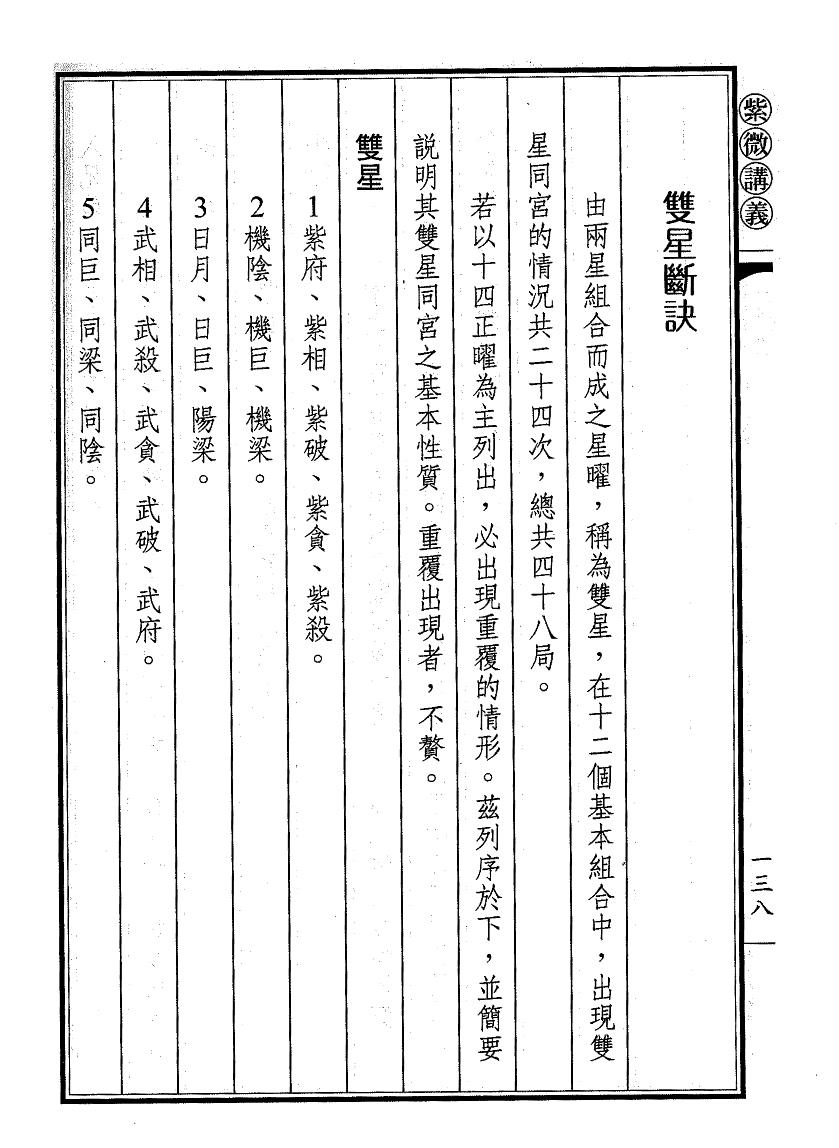 紫微講義
一三八
雙星斷訣
由兩星組合而成之星曜，稱為雙星，在十二個基本組合中，出現雙
星同宮的情況共二十四次，總共四十八局。
若以十四正曜為主列出，必出現重覆的情形。茲列序於下，並簡要
説明其雙星同宮之基本性質。重覆出現者，不贅。
雙星
1紫府、紫相、紫破、紫貪、紫殺。
2機陰、機巨、機梁。
3日月、日巨、陽梁。
4武相、武殺、武貪、武破、武府。
5同巨、同梁、同陰。